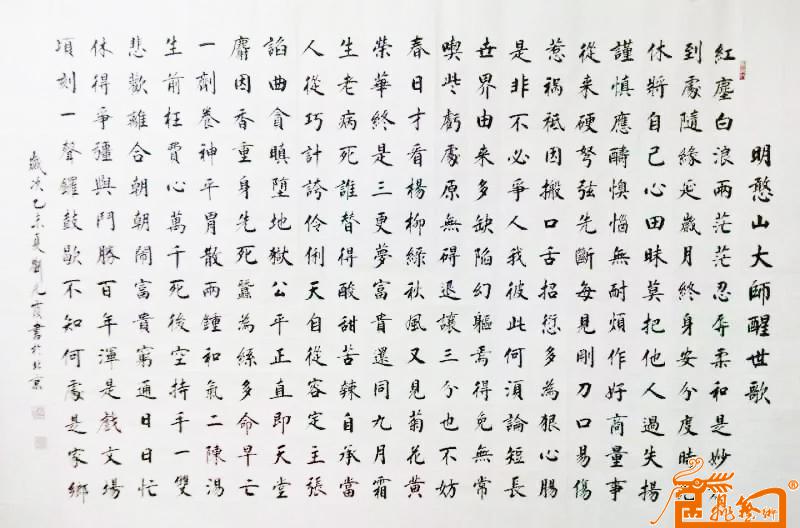 明憨山大師醒世歌
紅塵白浪兩茫茫忍辱柔和是妙
到處隨緣延歲月終身安分度時
休將自己心田昧莫把他人過失揚
謹慎應醻懊惱無耐煩作好商量事
從来硬弩弦先斷每見剛刀口易傷
惹禍祗因搬口舌招愆多為狠心腸
是非不必爭人我彼此何須論短長
世界由来多缺陷幻軀焉得免無常
喫些虧處原無碍退讓三分也不妨
春日才看楊柳綠秋風又見菊花黃
榮華終是三更夢富貴還同九月霜
生老病死誰替得酸甜苦辣自承當
人從巧計誇伶俐天自從容定主張
諂曲貪瞋墮地獄公平正直即天堂
麝因香重身先死蠶為絲多命早亡
一劑養神平胃散兩鍾和氣二陳湯
生前枉費心萬千死後空持手一雙
悲歡離合朝朝鬧富貴窮通日日忙
休得爭彊與鬥勝百年渾是戲文場
頃刻一聲鑼鼓歇不知何處是家鄉
歲次乙未夏劉霞書於北京